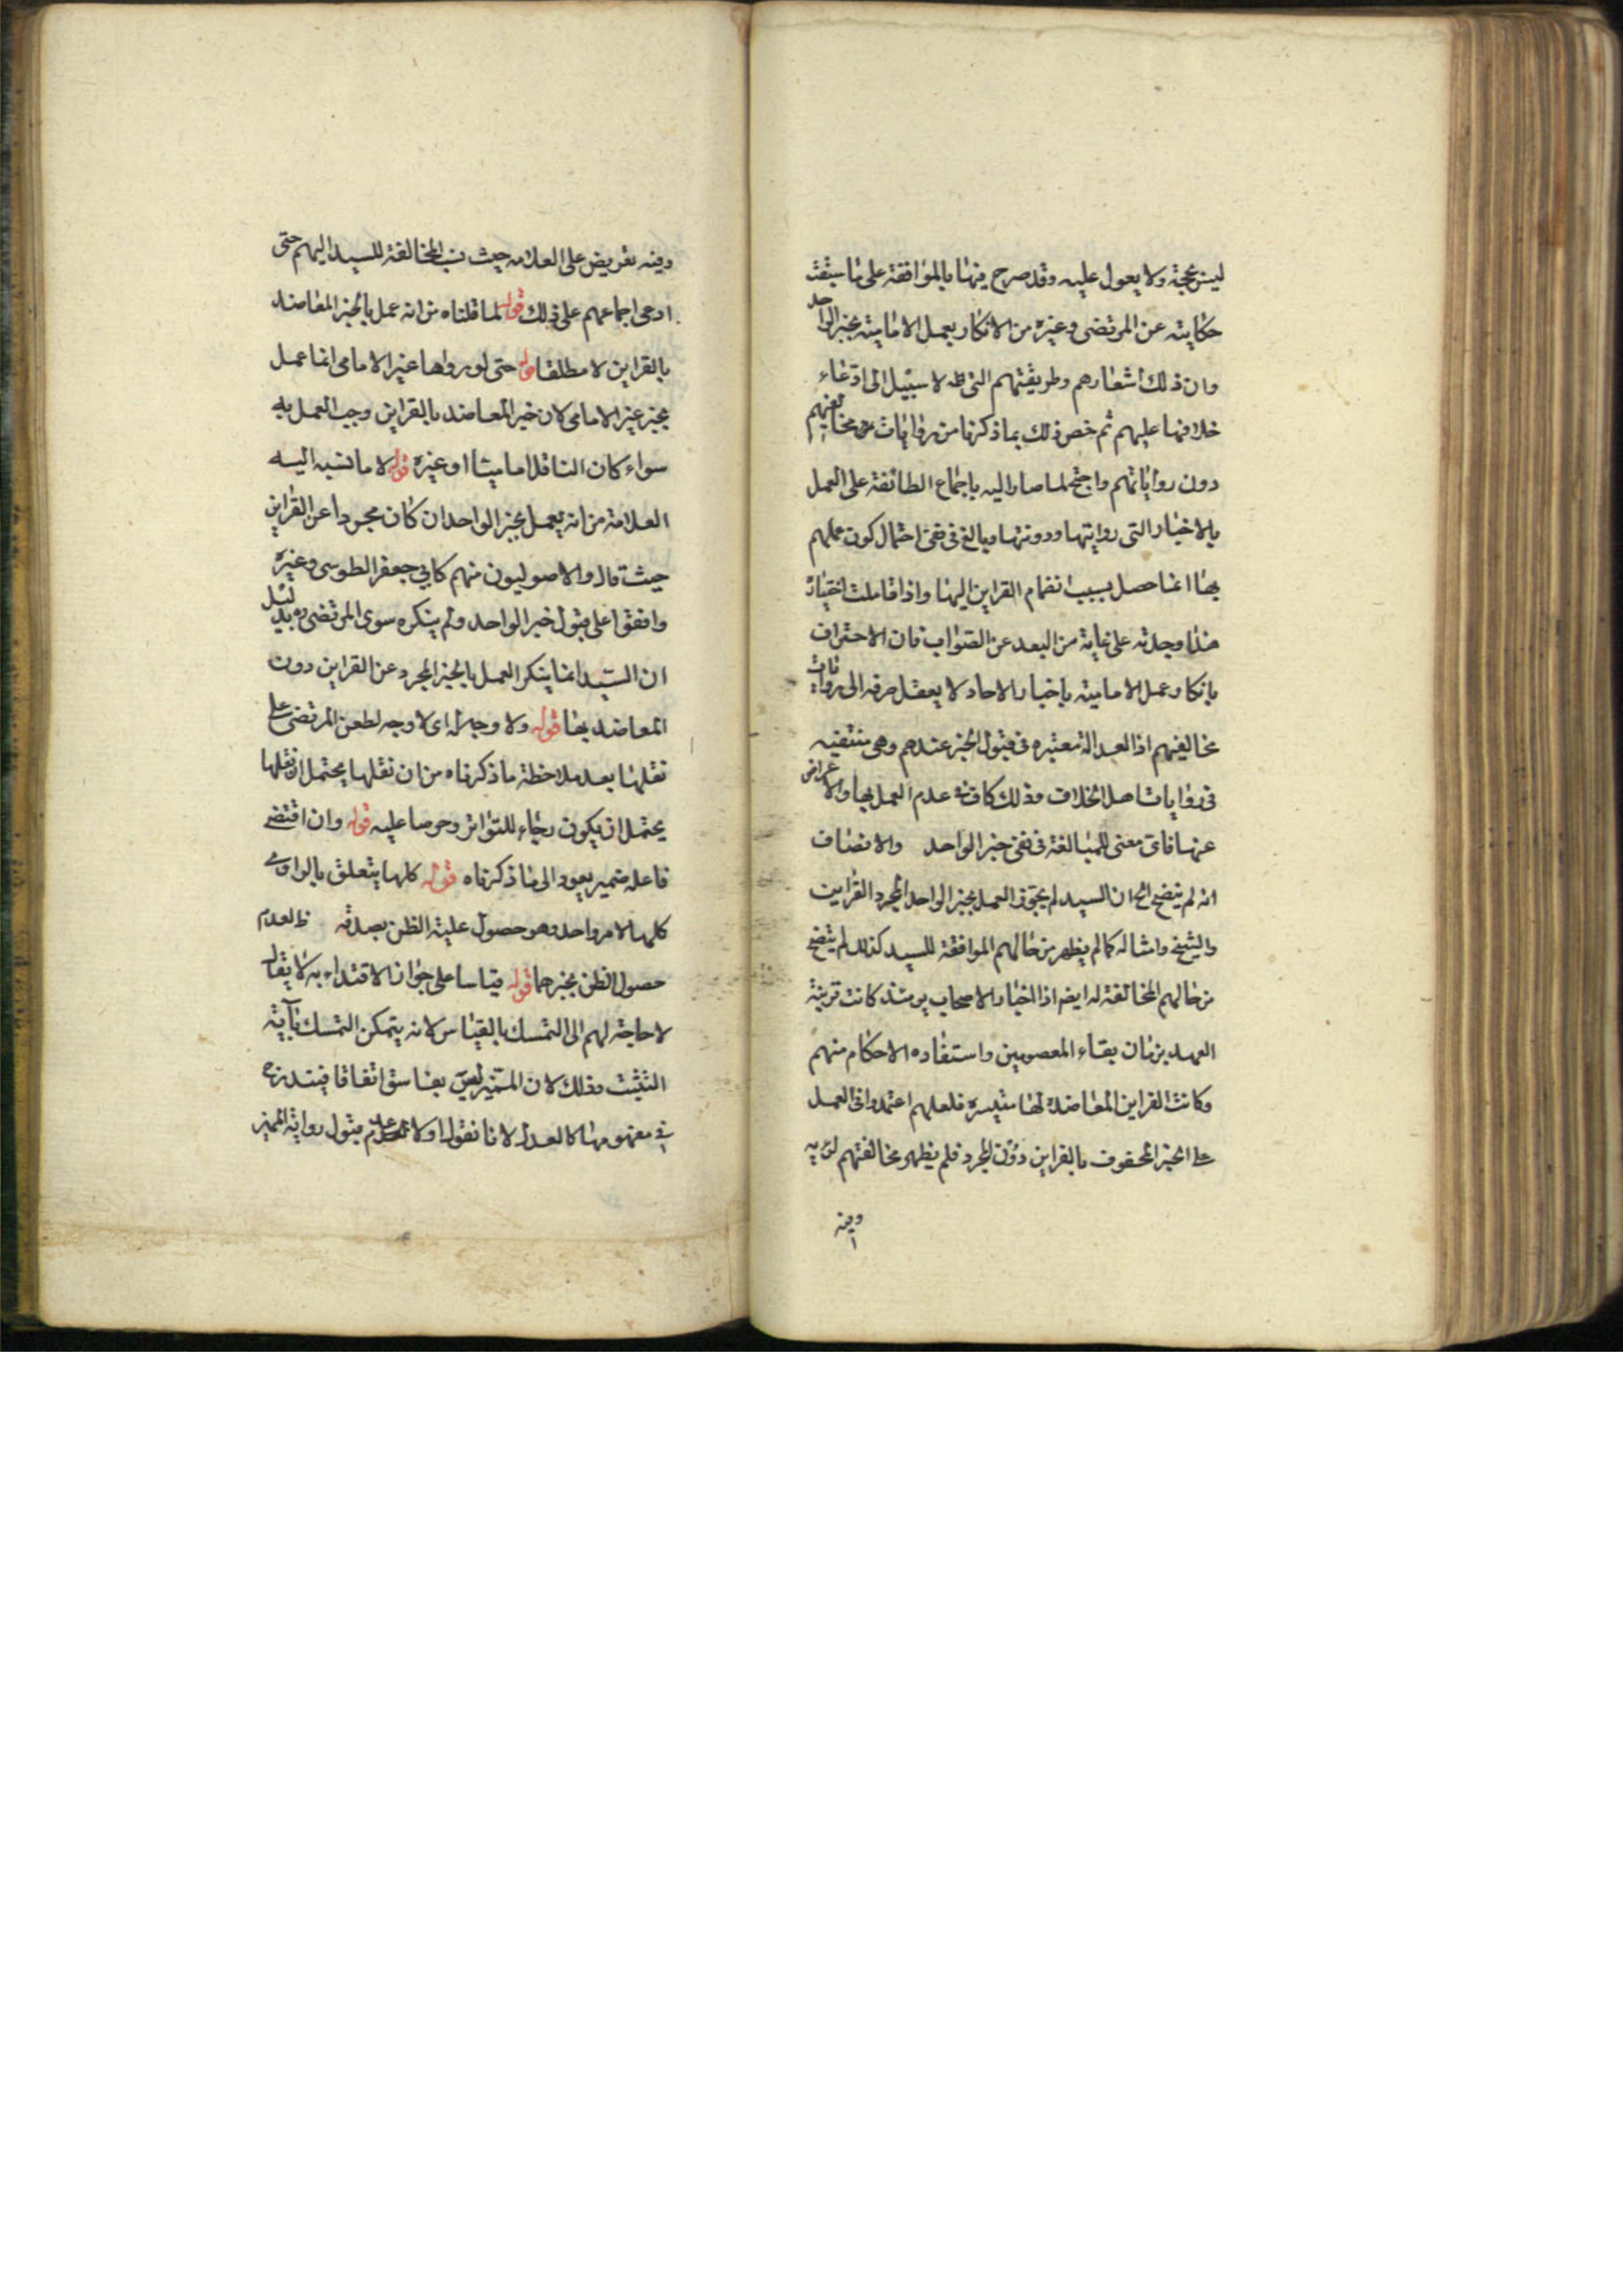 ليس بحجة ولا يعول عليه وقد صرح فيها بالموافقة على ما سبقت
حكايته عن المرتضى وغيره من الانكار بعمل الامامية بخبر الواحد
وان ذلك شعارهم وطريقتهم التى لا سبيل الى ادعاء
خلافها عليهم ثم خص ذلك بما ذكرنا من روايات مخالفيهم
دون رواياتهم واحتج لما صار اليه باجماع الطائفة على العمل
بالاخبار التى روايتها ودونتها وبالغ فى نفى احتمال كون عملهم
بها انما حصل بسبب انضمام القراين اليها واذا تاملت اختياره
هذا وجدته على غاية من البعد عن الصواب فان الاحتراف
بانكار عمل الامامية باخبار الاحاد لا يعقل صرفه الى روايات
مخالفيهم اذ العدالة معتبره فى قبول الخبر عندهم وهى منتفيه
فى روايات اهل الخلاف وذلك كاف فى عدم العمل بها والاعراض
عنها فاى معنى للمبالغة فى نفى خبر الواحد والانصاف
انه لم يتضح الخ ان السيد لم يجوز العمل بخبر الواحد المجرد القراين
والشيخ وامثاله كما لم يظهر من حالهم الموافقة للسيد كذلك لم يتضح
من حالهم المخالفة له ايضم اذ اخبار الاصحاب يومئذ كانت قريبة
العهد بزمان بقاء المعصومين واستفاده الاحكام منهم
وكانت القراين المعاضدة لها متيسره فلعلهم اعتمدوا فى العمل
على الخبر المحفوف بالقراين دون المجرد فلم يظهر مخالفتهم لرايه
وفيه
وفيه تعريض على العلامه حيث نسب المخالفة للسيد اليهم حتى
ادعى اجماعهم على ذلك قوله لما قلناه من انه عمل بالخبر المعاضد
بالقراين لا مطلقا قوله حتى لو رواها غير الامامى انما عمل
بخبر غير الامامى لان خبر المعاضد بالقراين وجب العمل به
سواء كان الناقل اماميثا او غيره قوله لا ما نسبه اليه
العلامة من انه يعمل بخبر الواحد ان كان مجردا عن القراين
حيث قال والاصوليون منهم كابى جعفر الطوسى وغيره
وافقوا على قبول خبر الواحد ولم ينكره سوى المرتضى ره بدليل
ان السيد انما ينكر العمل بالخبر المجرد عن القراين دون
المعاضد بها قوله ولا وجه له اى لا وجه لطعن المرتضى على
نقلها بعد ملاحظة ما ذكرناه من ان نقلها يحتمل ان نقلها
يحتمل ان يكون رجاء للتواتر وحرصا عليه قوله وان اقتضى
فاعله ضمير يعود الى ما ذكرناه قوله كلها يتعلق بالراوى
كلها لامر واحد وهو حصول علية الظن بصدقه ظ لعدم
حصول الظن بخبرهما قوله قياسا على جواز الاقتداء به لا يقال
لا حاجة لهم الى التمسك بالقياس لانه يتمكن التمسك بآية
التثبت وذلك لان المميز ليس بفاسق اتفاقا فيندرج
فى مفهومها كالعدل لانا نقول اولا عدم قبول رواية المميز